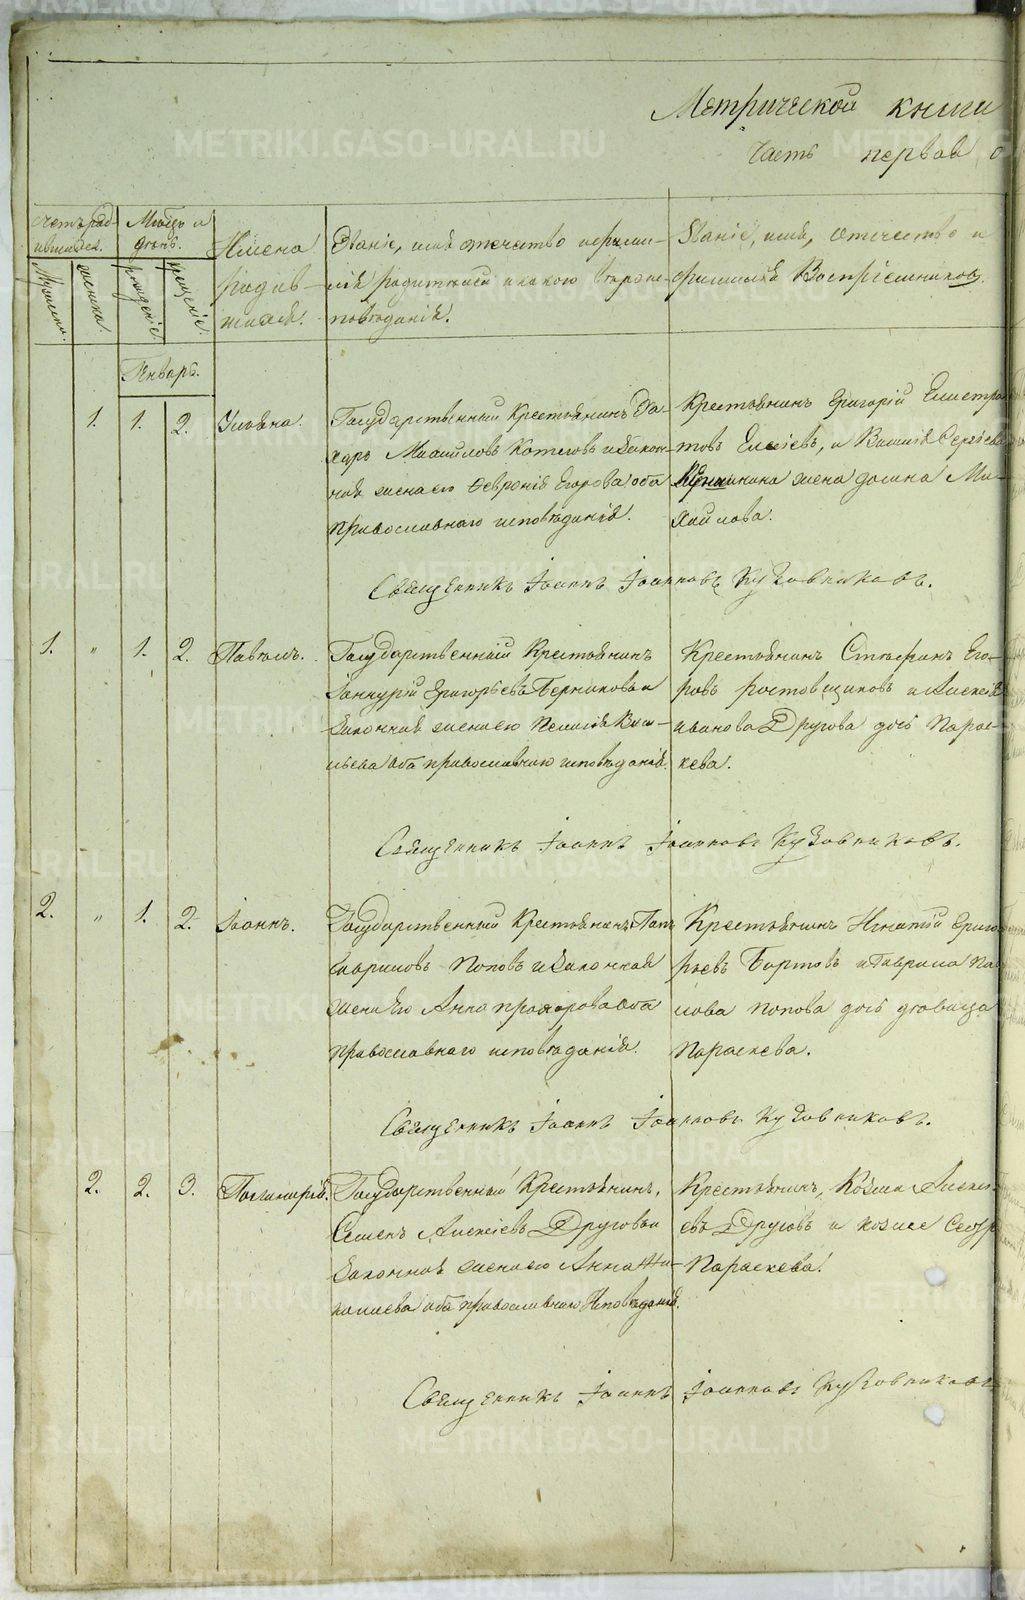 Метрической книги
Часть первая о
Счетъ род-
ившихся.
Мѣсяцъ и
день.
Имена
родив-
шихся.
Званіе, имя отечество и фами-
лія родителей и какого вѣроис-
повѣданія.
Званіе, имя, отчество и
фамилія Воспріемниковъ.
Мужска.
женска.
рожденіе
крещеніе.
Январь.
1. 1. 2. Ульяна.
Государственный Крестьянинъ За-
харъ Михайловъ и закон-
ная жена его Февронія Егорова оба
православнаго исповѣданія.
Крестьянинъ Григорій Елистра
товъ Елисѣевъ, и Василія Сергѣева
жена Домна Ми-
хайлова.
Священникъ Іоаннъ Іоанновъ Кузовниковъ.
1. " 1. 2. Павелъ.
Государственный Крестьянинъ
Григорьевъ Берниковъ и
законная жена его Васи-
льева оба православнаго исповѣданія.
Крестьянинъ Стефанъ Его-
ровъ Ростовщиковъ и Алексѣя
Иванова Другова дочь Парас-
кева.
Священникъ Іоаннъ Іоанновъ Кузовниковъ.
2. " 1. 2. Іоаннъ.
Государственный Крестьянинъ
Гавриловъ Поповъ и законная
жена Его Анна Прохорова оба
православнаго исповѣданія.
Крестьянинъ Игнатій Григо
рьевъ Бортовъ и Гаврила Па
лова Попова дочь девица
Параскева.
Священникъ Іоаннъ Іоанновъ Кузовниковъ.
2. 2. 3.
Государственный Крестьянинъ,
Семенъ Алексѣевъ Друговъ и
законная жена его Анна
оба православнаго Исповѣданія.
Крестьянинъ, Козма Алексѣ-
евъ Друговъ и
Параскева!
Священникъ Іоаннъ Іоанновъ Кузовниковъ
METRIKI.GASO-URAL.RU